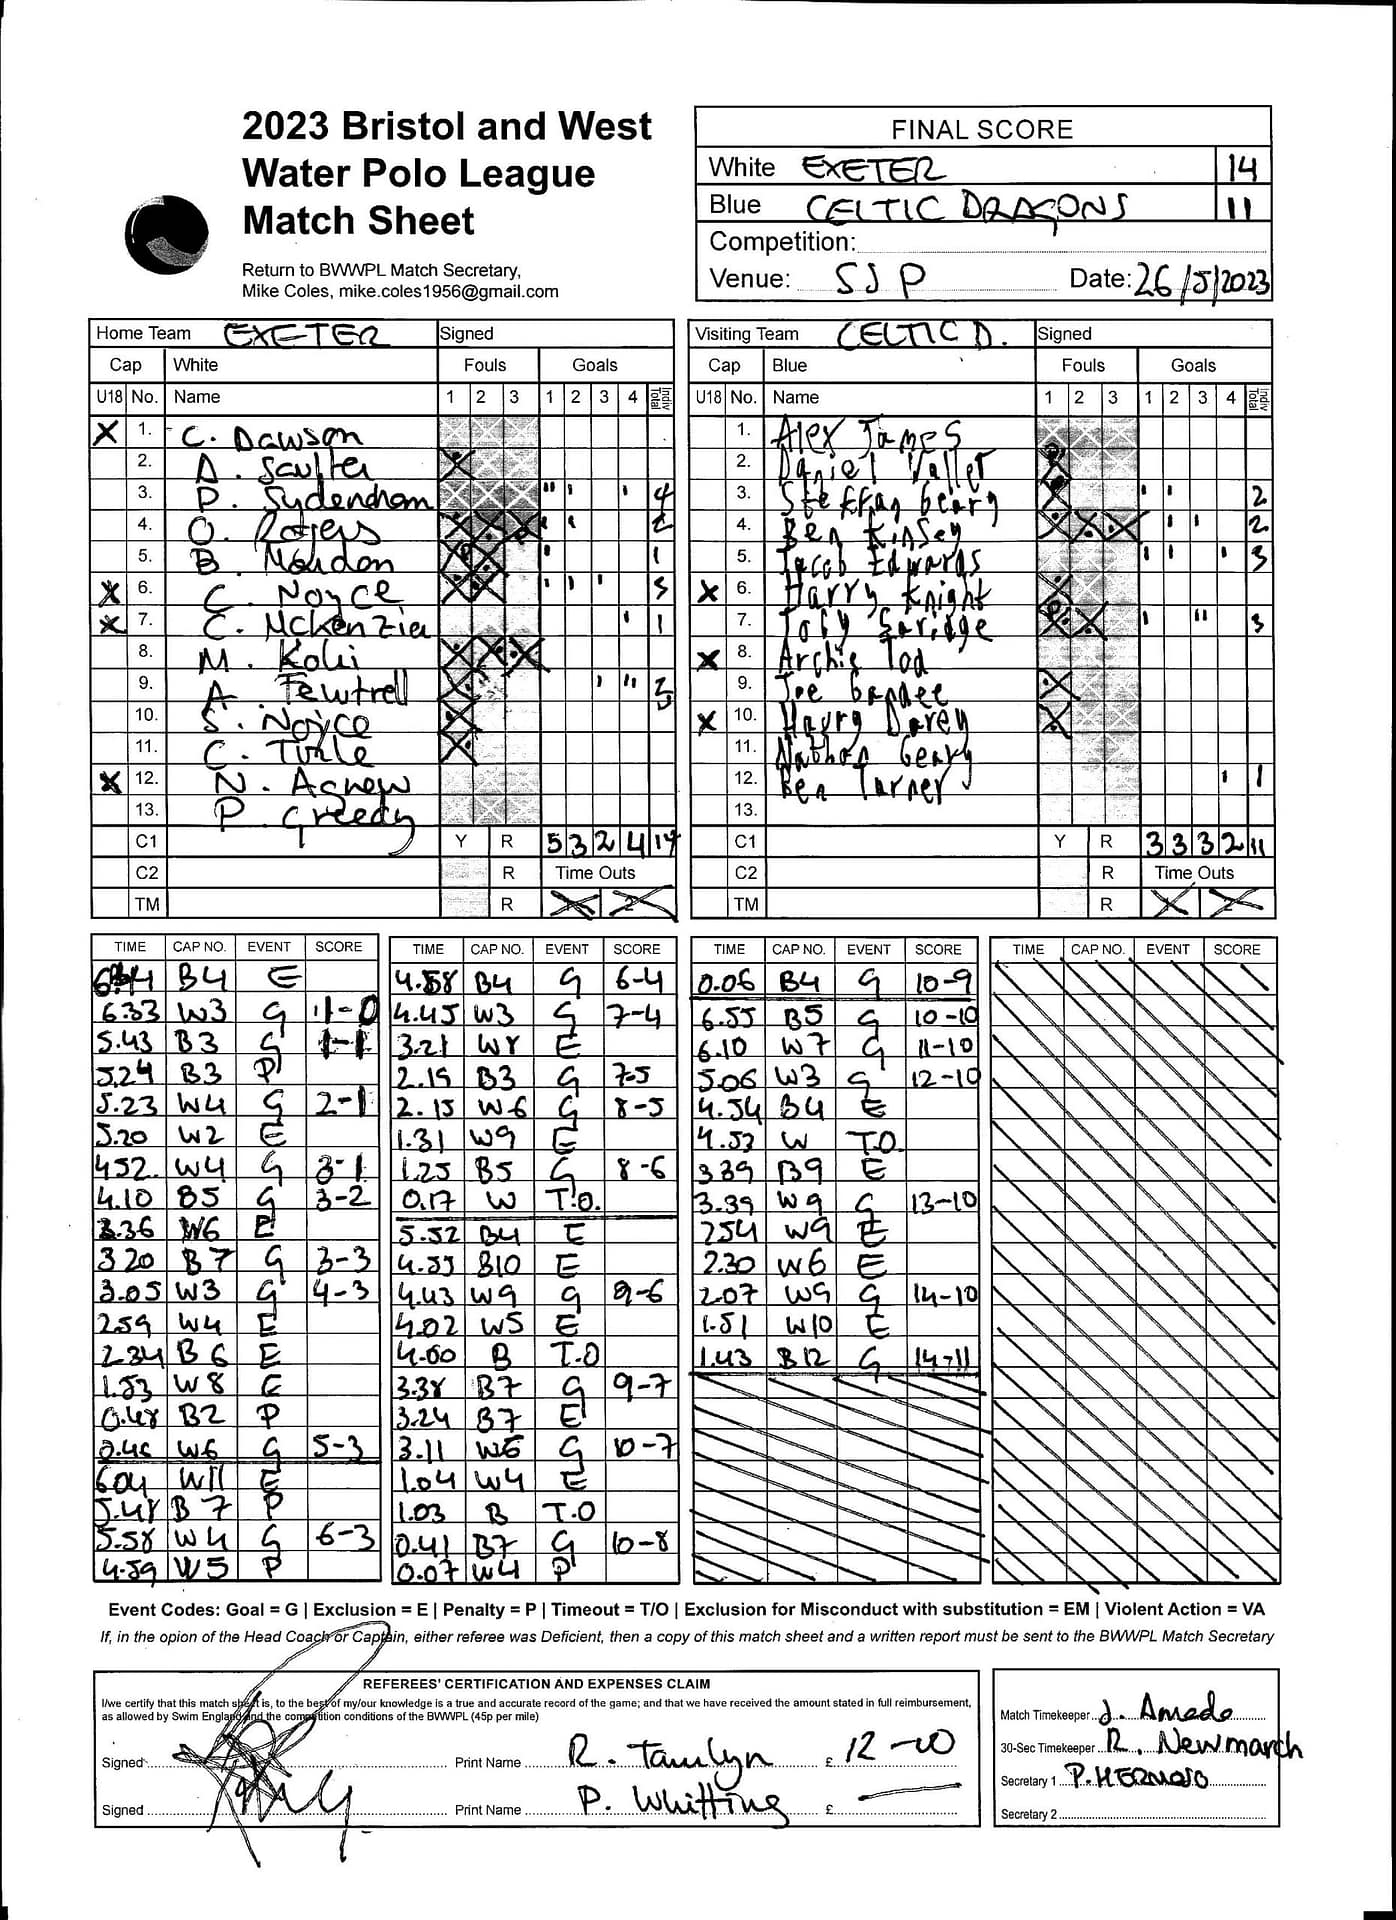 2023 Bristol and West
Water Polo League
Match Sheet
Return to BWWPL Match Secretary,
Mike Coles, mike.coles1956@gmail.com
FINAL SCORE
White EXETER 14
Blue CELTIC DRAGONS 11
Competition:
Venue: SJP Date: 26/5/2023
Home Team EXETER Signed
Cap White Fouls Goals
U18 No. Name 1 2 3 1 2 3 4 Indiv Total
X 1. C. Dawson
2. A. Saulter X
3. P. Sydenham " ' ' 4
4. O. Rogers X X X ' ' 2
5. B. X X ' 1
X 6. C. Noyce X X ' ' ' 3
X 7. C. McKenzie ' 1
8. M. Kolii X X X
9. A. Fewtrell X ' " 3
10. S. Noyce X
11. C. Turle X
X 12. N. Agnew
13. P. Greedy
C1 Y R 5 3 2 4 14
C2 R Time Outs
TM R 1 2
Visiting Team CELTIC D. Signed
Cap Blue Fouls Goals
U18 No. Name 1 2 3 1 2 3 4 Indiv Total
1. Alex James
2. Daniel Vallet X
3. Steffan Geary X ' ' 2
4. Ben Kinsey X X X ' ' 2
5. Jacob Edwards ' ' ' 3
X 6. Harry Knight X
7. Toby X X ' " 3
X 8. Archie Tod
9. Joe X
X 10. Harry Darey X
11. Nathan Geary
12. Ben Turner ' 1
13.
C1 Y R 3 3 3 2 11
C2 R Time Outs
TM R 1 2
TIME CAP NO. EVENT SCORE
B4 E
6.33 W3 G 1-0
5.43 B3 G 1-1
5.24 B3 P
5.23 W4 G 2-1
5.20 W2 E
4 52. W4 G 3-1
4.10 B5 G 3-2
3.36 W6 E
3 20 B7 G 3-3
3.05 W3 G 4-3
2 59 W4 E
2 34 B6 E
1.53 W8 E
0.48 B2 P
0.46 W6 G 5-3
6 04 W11 E
5.48 B7 P
5.58 W4 G 6-3
4.59 W5 P
TIME CAP NO. EVENT SCORE
4.58 B4 G 6-4
4.45 W3 G 7-4
3.21 W8 E
2.19 B3 G 7-5
2.15 W6 G 8-5
1.31 W9 E
1.25 B5 G 8-6
0.17 W T.O.
5.52 B4 E
4.55 B10 E
4.43 W9 G 9-6
4.02 W5 E
4.00 B T.O
3.38 B7 G 9-7
3.24 B7 E
3.11 W6 G 10-7
1.04 W4 E
1.03 B T.O
0.41 B7 G 10-8
0.07 W4 P
TIME CAP NO. EVENT SCORE
0.06 B4 G 10-9
6.55 B5 G 10-10
6.10 W7 G 11-10
5.06 W3 G 12-10
4.54 B4 E
4.53 W T.O.
3 39 B9 E
3.39 W9 G 13-10
2 54 W9 E
2.30 W6 E
2.07 W9 G 14-10
1.51 W10 E
1.43 B12 G 14-11
TIME CAP NO. EVENT SCORE
Event Codes: Goal = G | Exclusion = E | Penalty = P | Timeout = T/O | Exclusion for Misconduct with substitution = EM | Violent Action = VA
If, in the opion of the Head Coach or Captain, either referee was Deficient, then a copy of this match sheet and a written report must be sent to the BWWPL Match Secretary
REFEREES' CERTIFICATION AND EXPENSES CLAIM
I/we certify that this match sheet is, to the best of my/our knowledge is a true and accurate record of the game; and that we have received the amount stated in full reimbursement,
as allowed by Swim England and the competition conditions of the BWWPL (45p per mile)
Signed Print Name R. Tamlyn £ 12-00
Signed Print Name P. Whitting £ —
Match Timekeeper J. Amedo
30-Sec Timekeeper R. Newmarch
Secretary 1 P. HERMOSO
Secretary 2